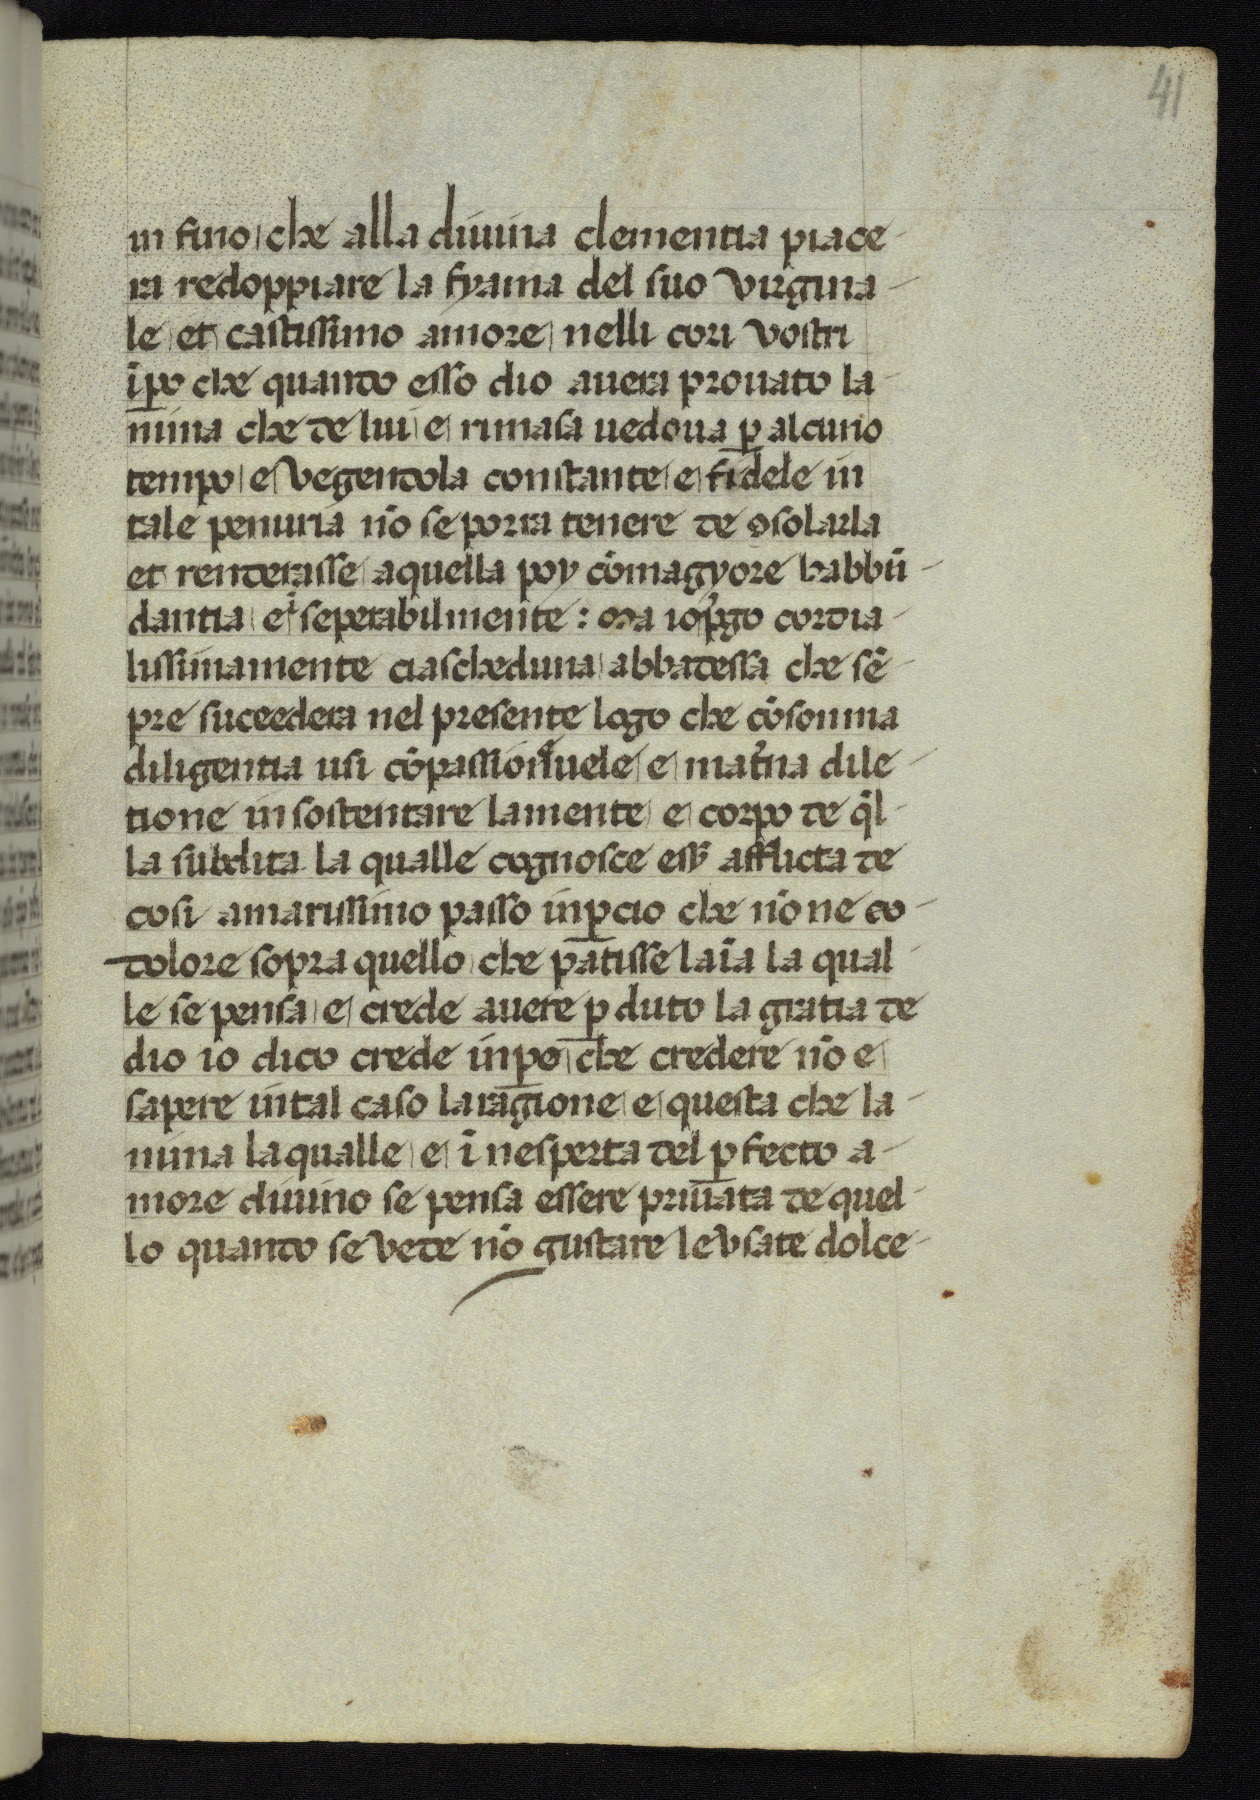 41
in fino che alla diuina clementia piace
ra redoppiare la fyama del suo virgina
le et castissimo amore nelli cori vostri
īp̱o che quando esso dio auera prouato la
nima che de lui e rimasa uedoua ꝑ alcuno
tempo e vegendola constante e fidele in
tale penuria nō se porra tenere de ꝯsolarla
et renderasse aquella poy cō magyore habbū
dantia e īseperabilmente : ma io p̄go cordia
lissimamente ciascheduna abbatessa che sē
pre succedera nel presente logo che cō somma
diligentia usi cōpassioneuele e mat̄na dile
tione in sostentare lamente e corpo de q̄l
la subdita la qualle cognosce ess̄ afflicta de
cosi amarissimo passo inꝑcio che nō ne co
dolore sopra quello che patisse laīa la qual
le se pensa e crede auere ꝑduto la gratia de
dio io dico crede inꝑo che credere nō e
sapere in tal caso laragione e questa che la
nima laqualle e ī nesperta del ꝑfecto a
more diuino se pensa essere priuata de quel
lo quando se vede nō gustare le vsate dolce